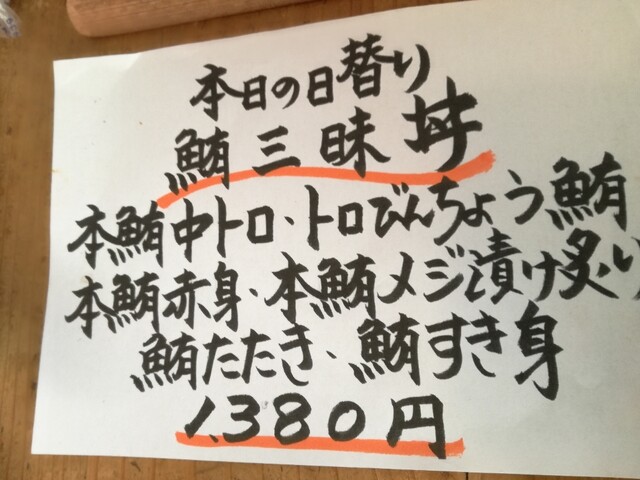 本日の日替り
鮪三昧丼
本鮪中トロ・トロびんちょう鮪
本鮪赤身・本鮪メジ漬け炙り
鮪たたき、鮪すき身
1,380円